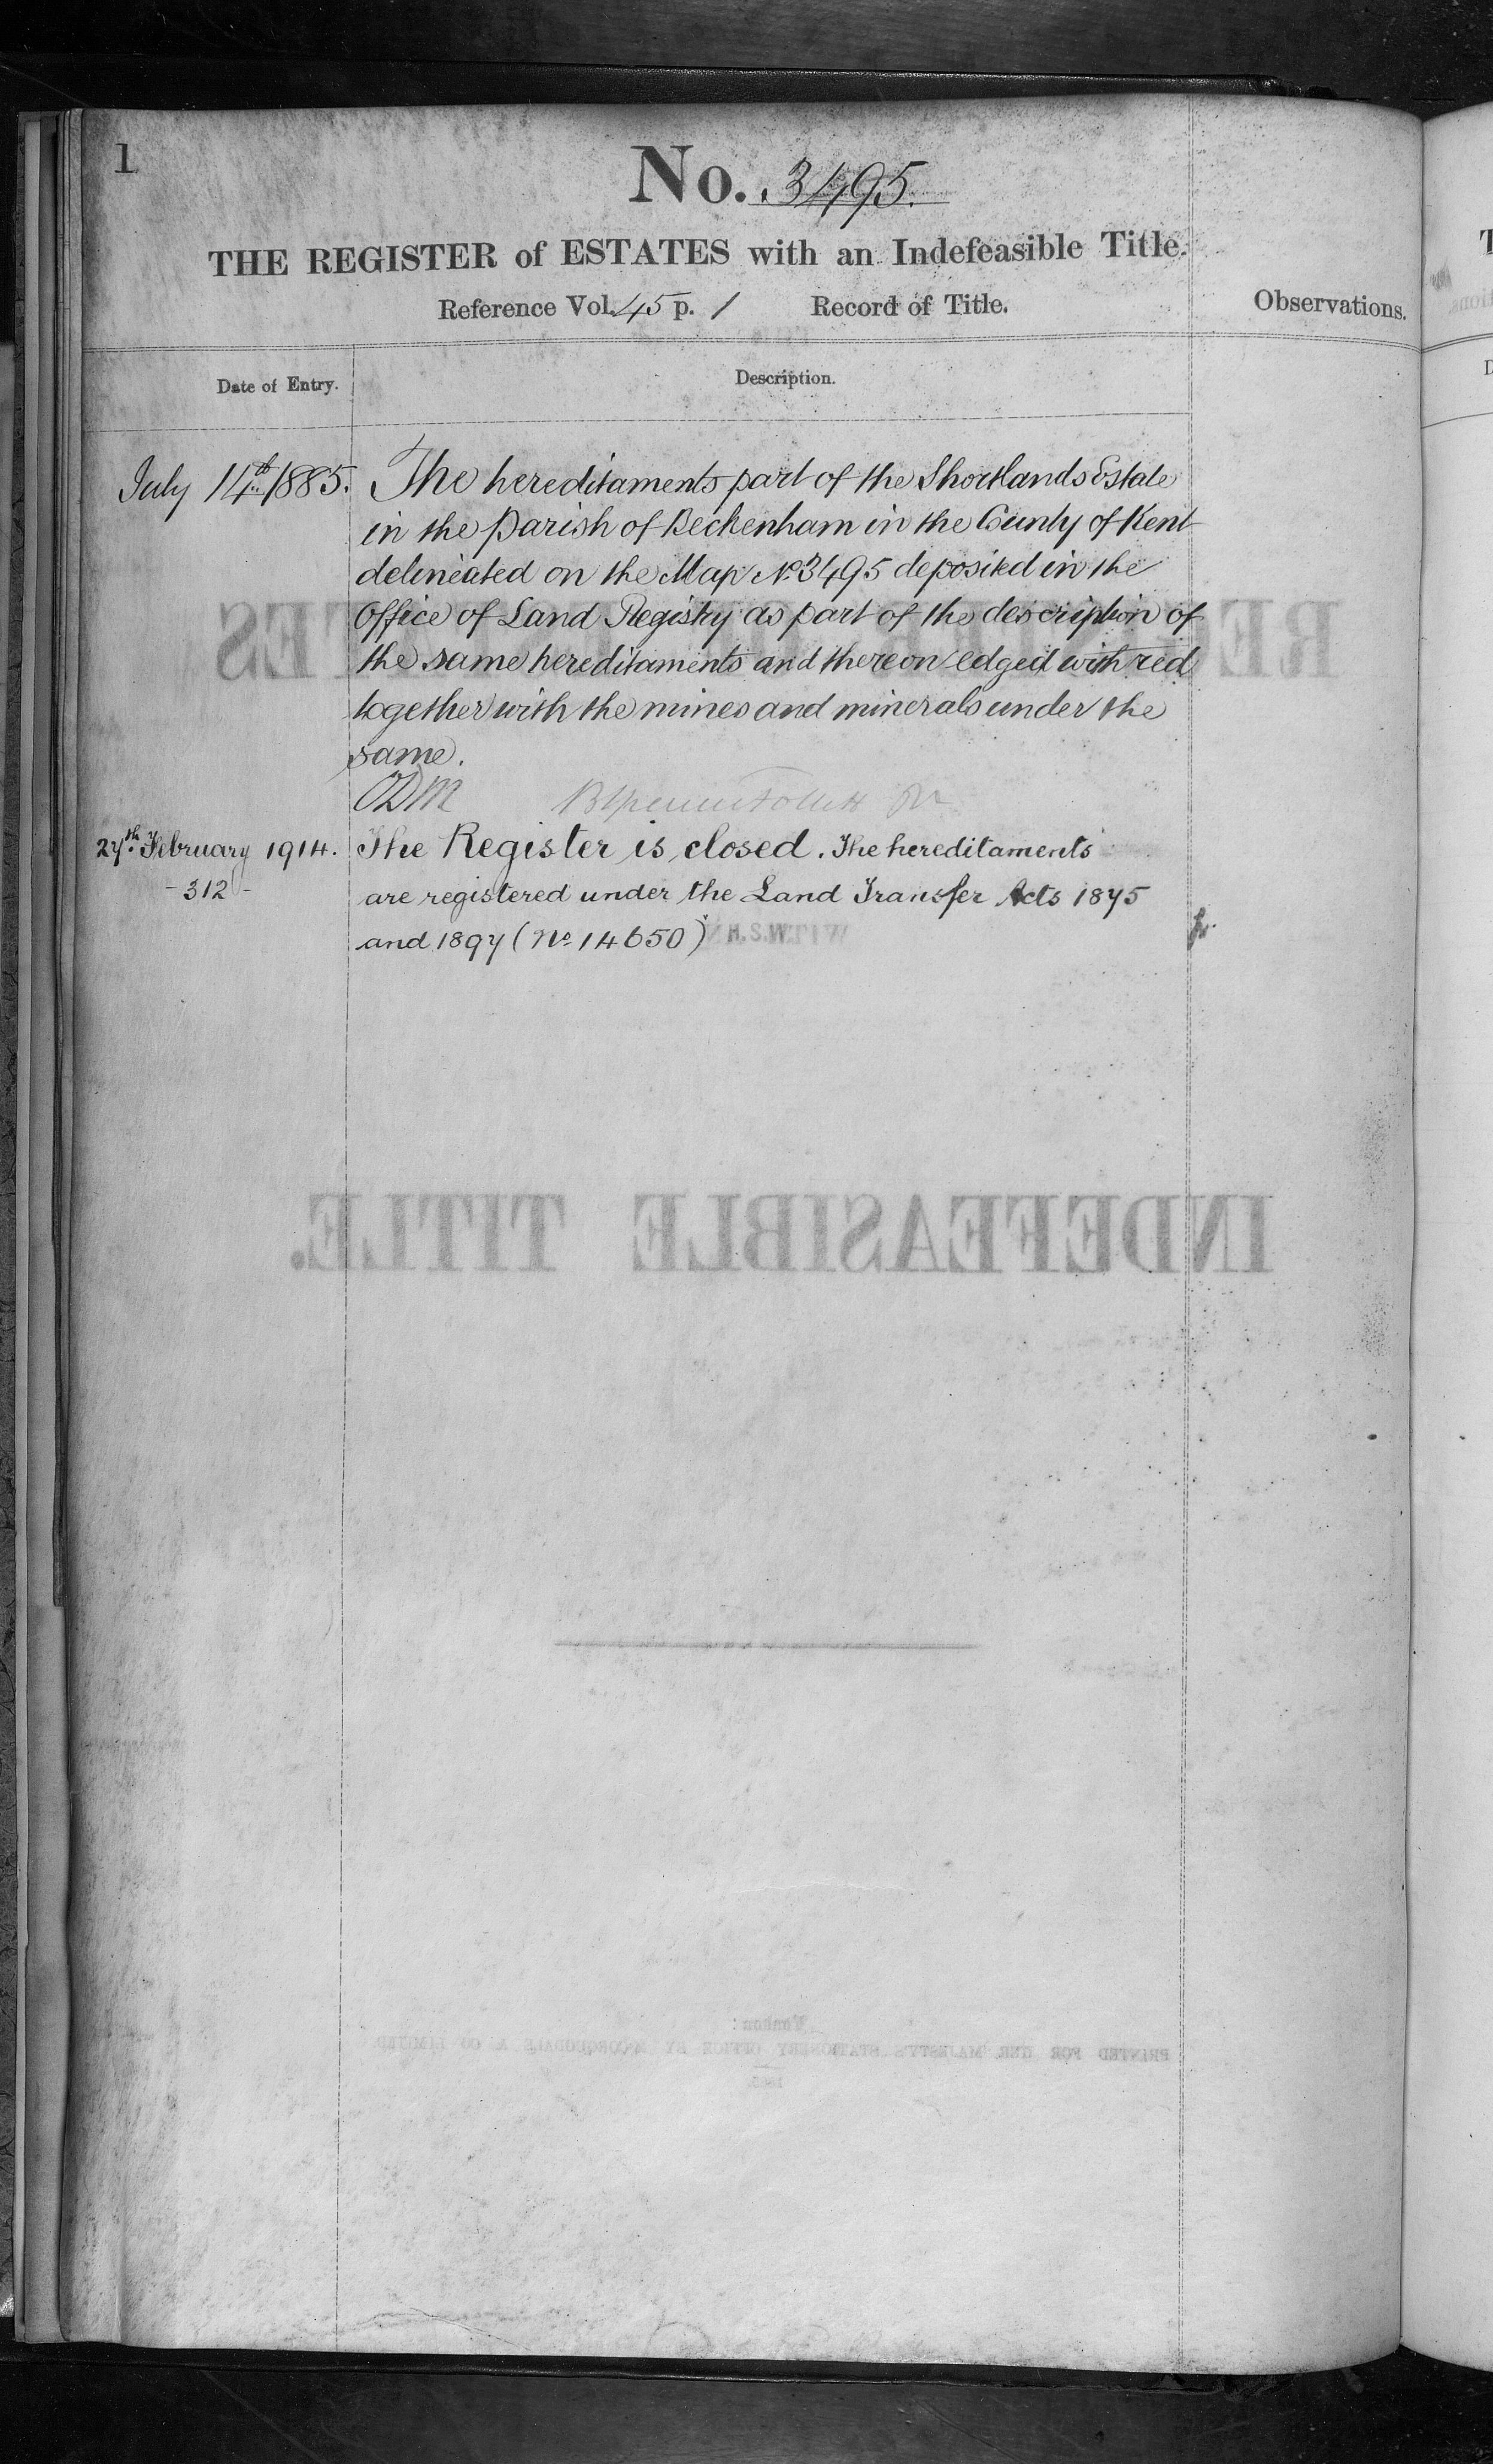 1
No. 3495.
THE REGISTER of ESTATES with an Indefeasible Title.
Reference Vol. 45 p. 1 Record of Title.
Observations.
Date of Entry.
Description.
July 14th 1885.
The hereditaments part of the Shortlands Estate
in the Parish of Beckenham in the County of Kent
delineated on the Map No 3495 deposited in the
Office of Land Registry as part of the description of
the same hereditaments and thereon edged with red
together with the mines and minerals under the
same.
27th February 1914.
- 312 -
The Register is closed. The hereditaments
are registered under the Land Transfer Acts 1875
and 1897 (No 14650)
REGISTER ESTATES
INDEFEASIBLE TITLE.
London:
PRINTED FOR HER MAJESTY'S STATIONERY OFFICE BY McCORQUODALE & CO LIMITED